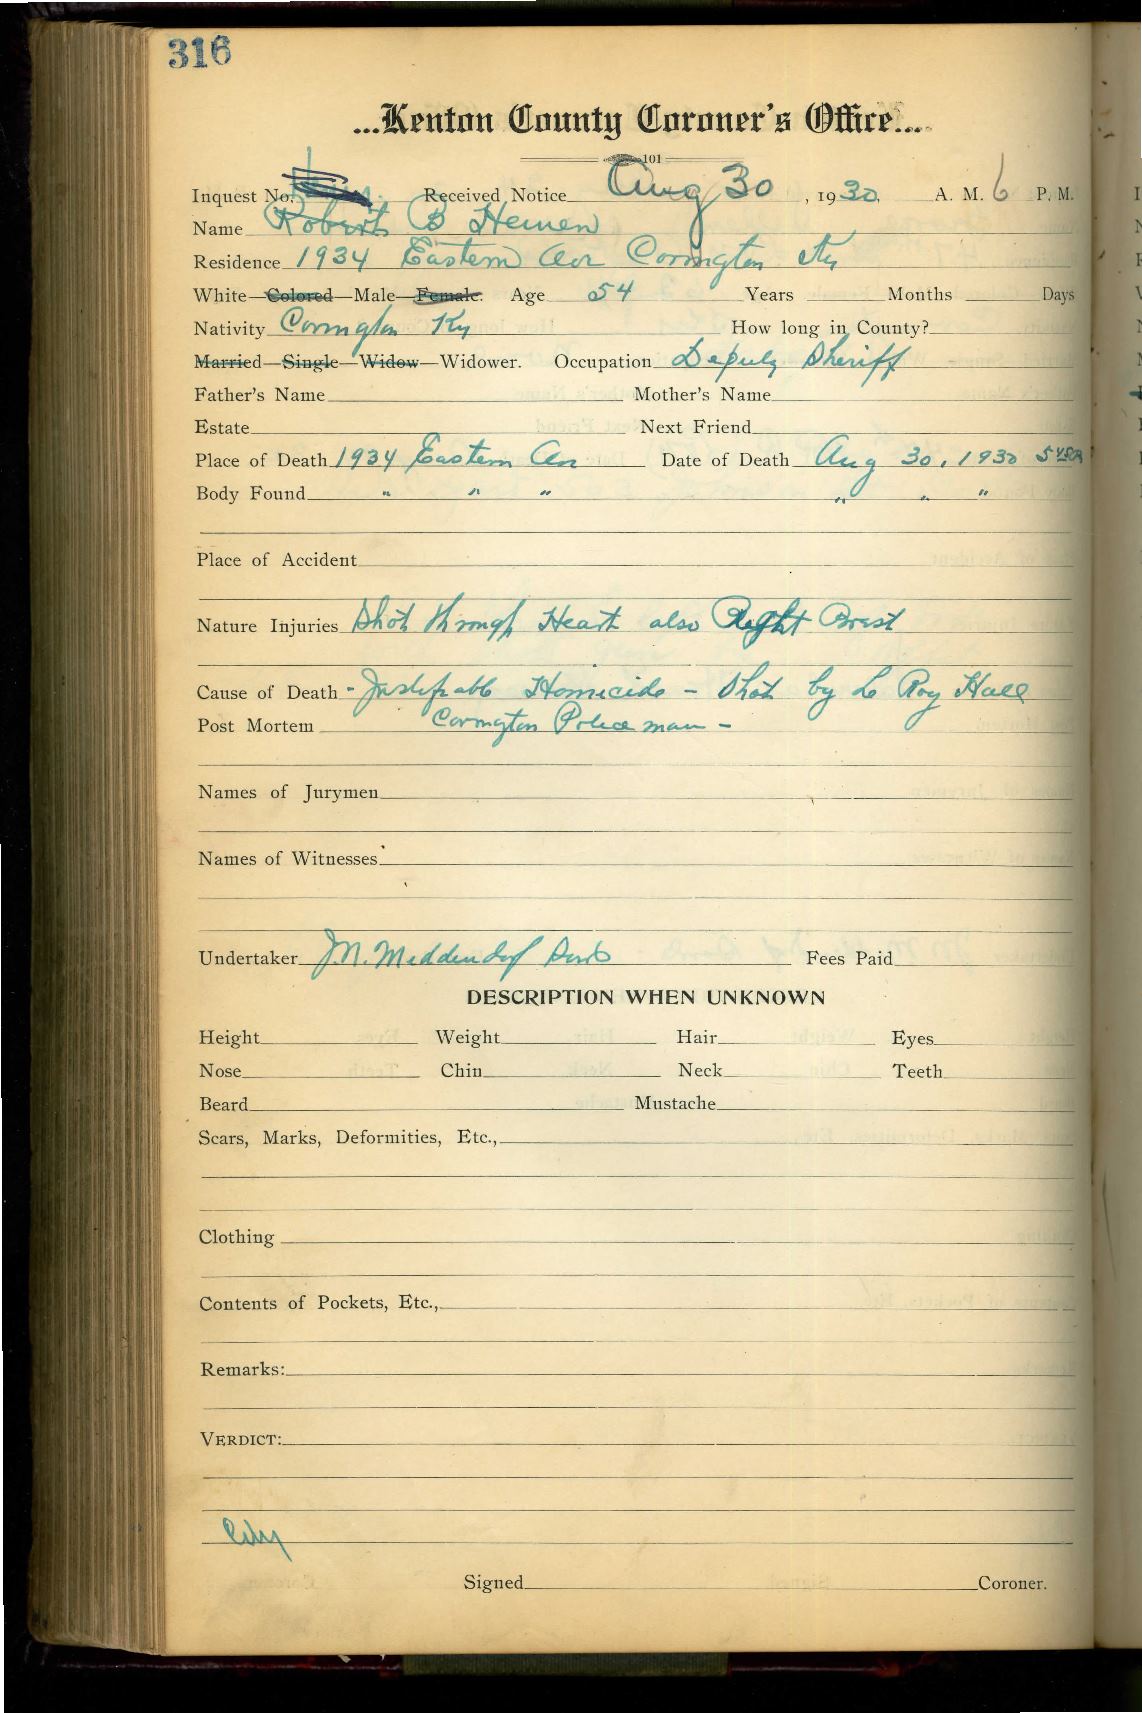 316
...Kenton County Coroner's Office...
101
Inquest No. Received Notice Aug 30, 1930. A. M. 6 P. M.
Name Robert B Heinen
Residence 1934 Eastern Ave Covington Ky
White—Colored—Male—Female. Age 54 Years Months Days
Nativity Covington Ky How long in County?
Married—Single—Widow—Widower. Occupation Deputy Sheriff
Father's Name Mother's Name
Estate Next Friend
Place of Death 1934 Eastern Ave Date of Death Aug 30, 1930
Body Found " " " " " "
Place of Accident
Nature Injuries Shot through Heart also Right Brest
Cause of Death - Justifiable Homicide - Shot by Le Roy Hall
Post Mortem Covington Police man -
Names of Jurymen
Names of Witnesses
Undertaker J.N. Middendorf Sons Fees Paid
DESCRIPTION WHEN UNKNOWN
Height Weight Hair Eyes
Nose Chin Neck Teeth
Beard Mustache
Scars, Marks, Deformities, Etc.,
Clothing
Contents of Pockets, Etc.,
Remarks:
VERDICT:
City
Signed Coroner.